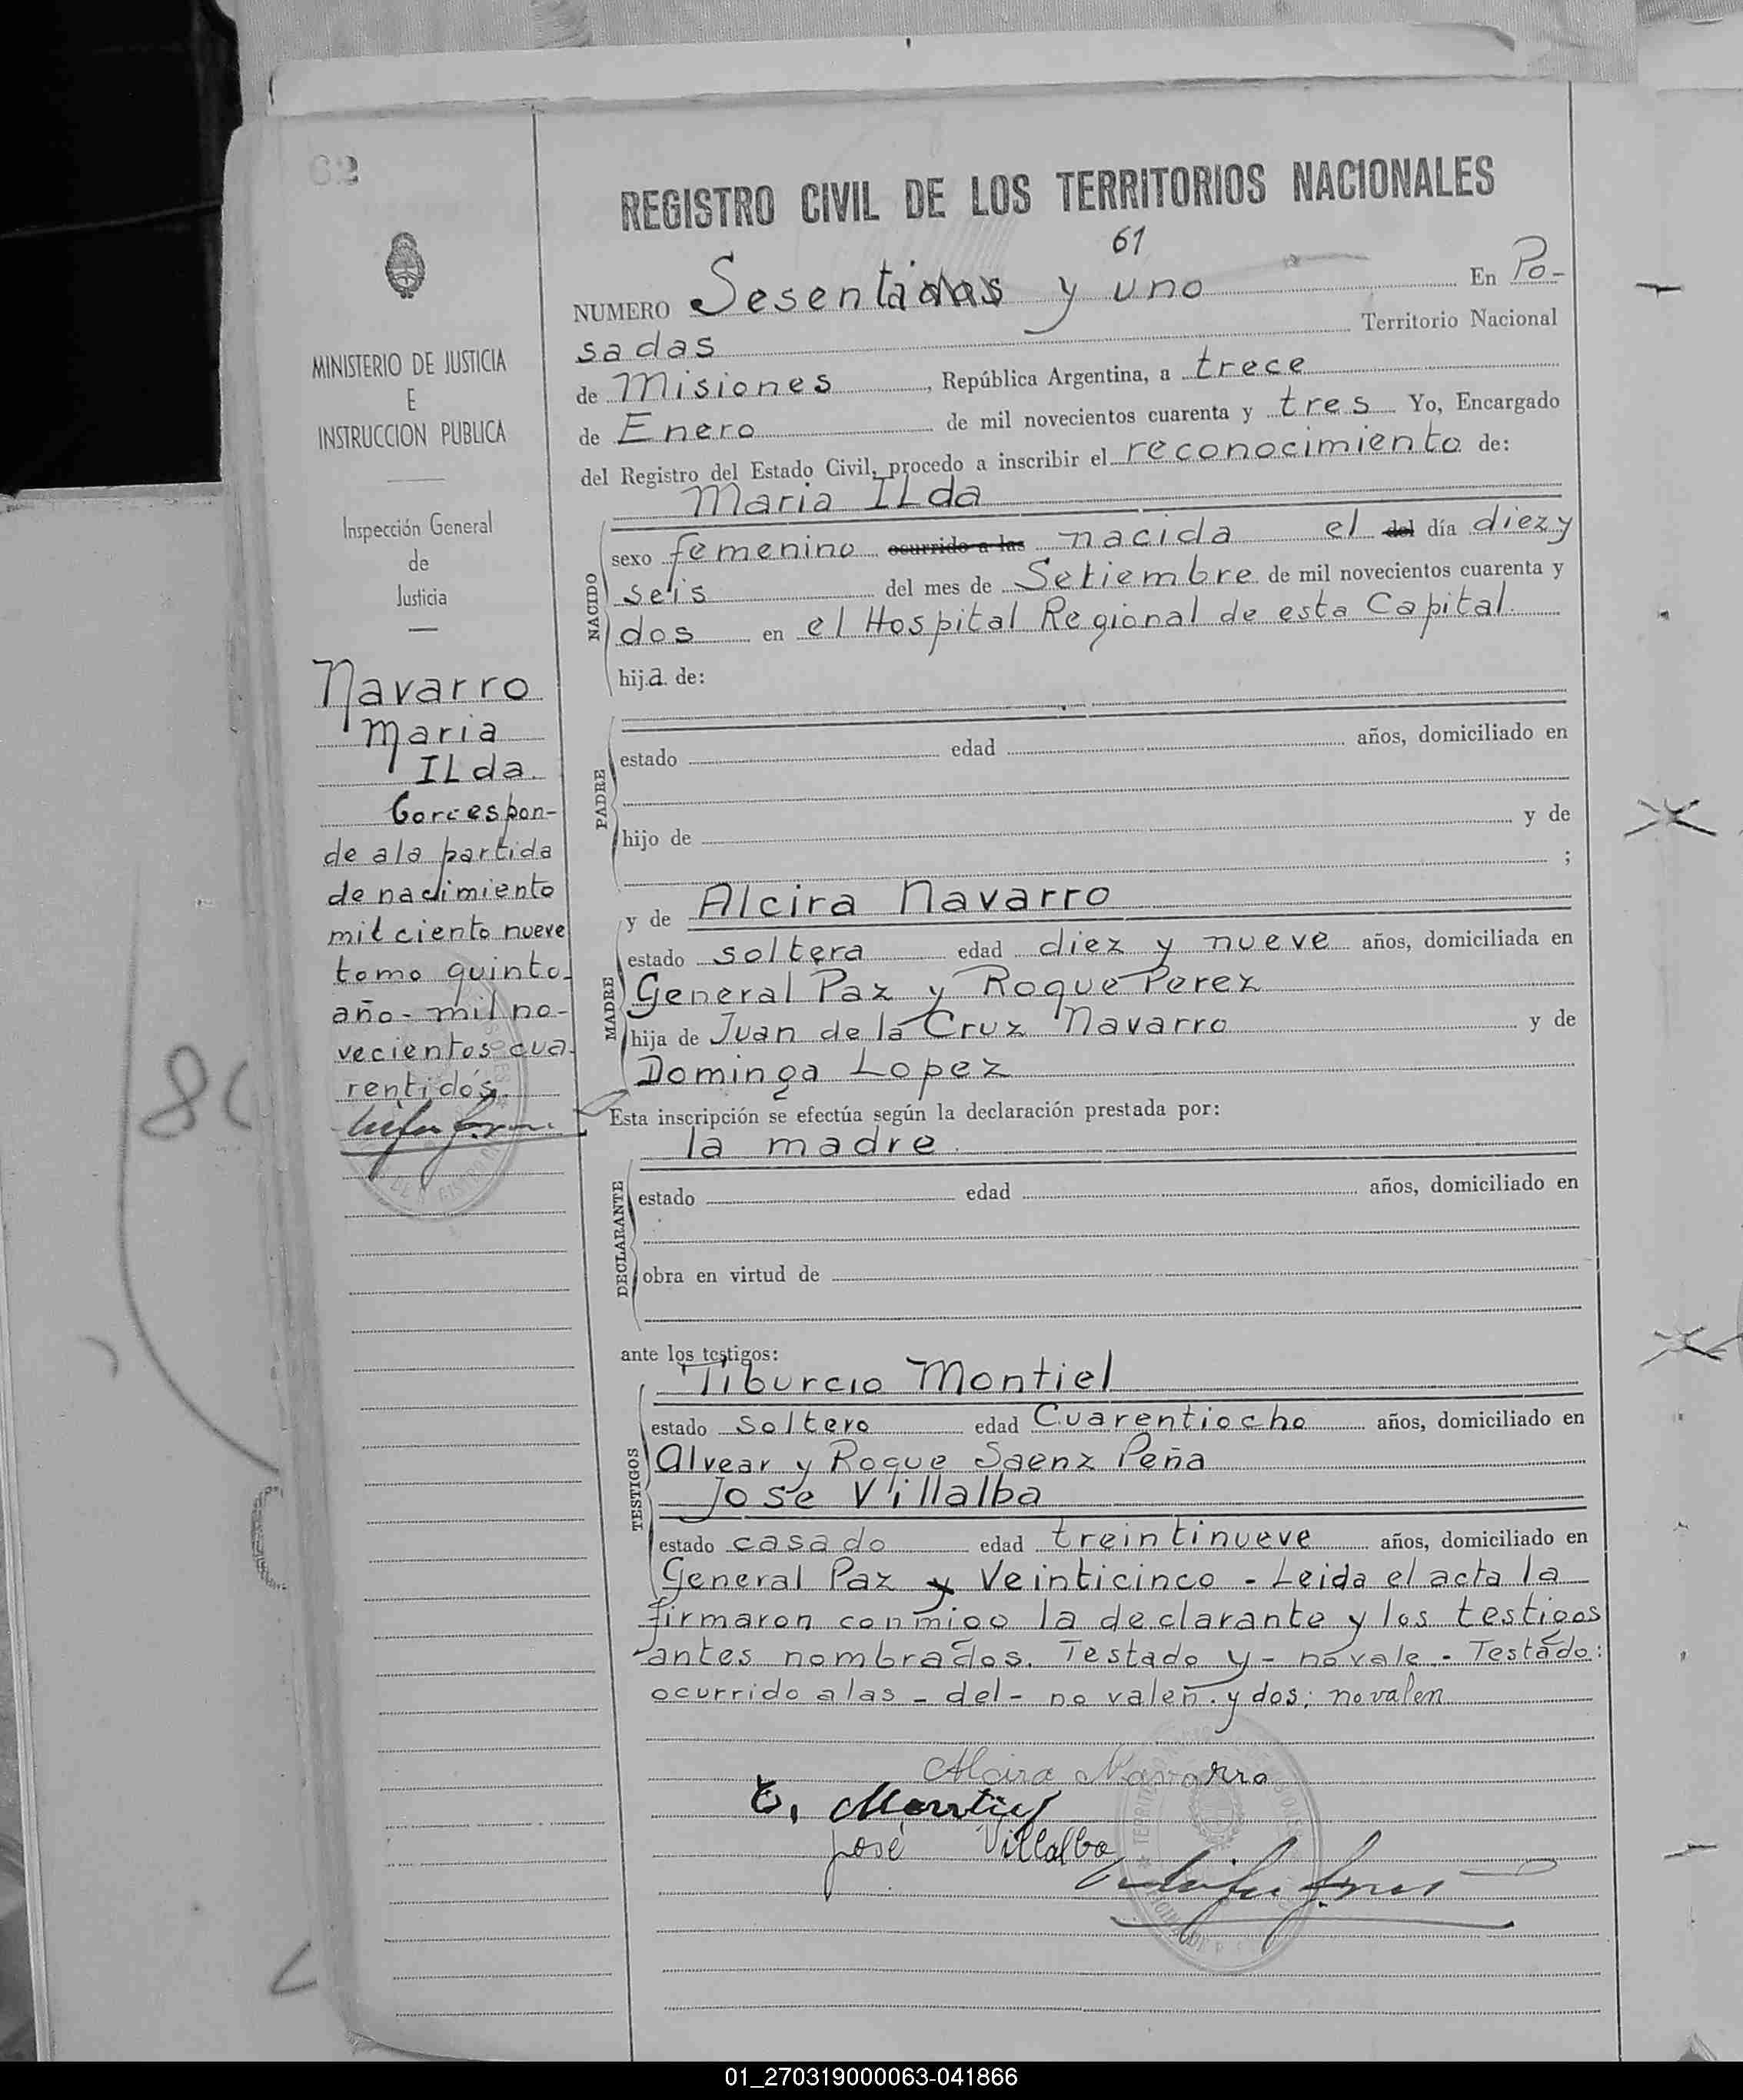 62
REGISTRO CIVIL DE LOS TERRITORIOS NACIONALES
61
NUMERO Sesenta y uno En Po-
sadas Territorio Nacional
de Misiones, República Argentina, a trece
de Enero de mil novecientos cuarenta y tres Yo, Encargado
del Registro del Estado Civil, procedo a inscribir el reconocimiento de:
Maria ILda
sexo femenino ocurrido a las nacida el del día diez y
seis del mes de Setiembre de mil novecientos cuarenta y
dos en el Hospital Regional de esta Capital.
hija de:
NACIDO
estado edad años, domiciliado en
hijo de y de
;
PADRE
y de Alcira Navarro
estado soltera edad diez y nueve años, domiciliada en
General Paz y Roque Perez
hija de Juan de la Cruz Navarro y de
Dominga Lopez
MADRE
Esta inscripción se efectúa según la declaración prestada por:
la madre
estado edad años, domiciliado en
obra en virtud de
DECLARANTE
ante los testigos:
Tiburcio Montiel
estado soltero edad Cuarentiocho años, domiciliado en
Alvear y Roque Saenz Peña
Jose Villalba
estado casado edad treintinueve años, domiciliado en
General Paz y Veinticinco - Leida el acta la
firmaron conmigo la declarante y los testigos
antes nombrados. Testado y - no vale - Testado:
ocurrido a las - del - no valen. y dos; no valen
TESTIGOS
Alcira Navarro
t. Montiel
José Villalba
MINISTERIO DE JUSTICIA
E
INSTRUCCION PUBLICA
Inspección General
de
Justicia
Navarro
Maria
ILda.
Correspon-
de a la partida
de nacimiento
mil ciento nueve
tomo quinto-
año- mil no-
vecientos cua-
rentidós.
01_270319000063-041866